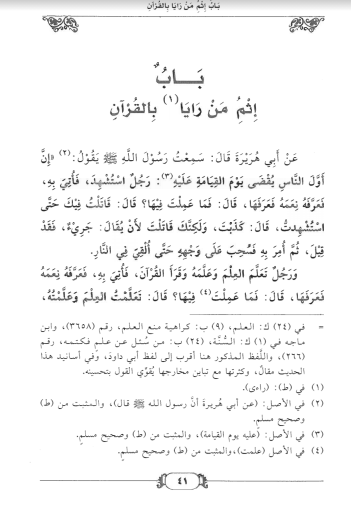 بَابُ إِثْمِ مَنْ رَايَا بِالقُرْآنِ
بَـــابُ
إِثْمِ مَنْ رَايَا(١) بِالقُرْآنِ
عَنْ أَبِي هُرَيْرَةَ قَالَ: سَمِعْتُ رَسُولَ اللَّهِ ﷺ يَقُولُ:(٢) «إِنَّ
أَوَّلَ النَّاسِ يُقْضَى يَوْمَ القِيَامَةِ عَلَيْهِ(٣): رَجُلٌ اسْتُشْهِدَ، فَأُتِيَ بِهِ،
فَعَرَّفَهُ نِعَمَهُ فَعَرَفَهَا، قَالَ: فَمَا عَمِلْتَ فِيهَا؟ قَالَ: قَاتَلْتُ فِيكَ حَتَّى
اسْتُشْهِدتُ، قَالَ: كَذَبْتَ، وَلَكِنَّكَ قَاتَلْتَ لأَنْ يُقَالَ: جَرِيْءٌ، فَقَدْ
قِيْلَ، ثُمَّ أُمِرَ بِهِ فَسُحِبَ عَلَى وَجْهِهِ حَتَّى أُلْقِيَ فِي النَّارِ.
وَرَجُلٌ تَعَلَّمَ العِلْمَ وَعَلَّمَهُ وَقَرَأَ القُرْآنَ، فَأُتِيَ بِهِ، فَعَرَّفَهُ نِعَمَهُ
فَعَرَفَهَا، قَالَ: فَمَا عَمِلْتَ(٤) فِيْهَا؟ قَالَ: تَعَلَّمْتُ العِلْمَ وَعَلَّمْتُهُ،
= في (٢٤) ك: العلم، (٩) ب: كراهية منع العلم، رقم (٣٦٥٨)، وابن
ماجه في (١) ك: السُّنَّة، (٢٤) ب: من سُئل عن علم فكتمه، رقم
(٢٦٦)، واللَّفظ المذكور هنا أقرب إلى لفظ أبي داود، وفي أسانيد هذا
الحديث مقالٌ، وكثرتها مع تباين مخارجها يُقوِّي القول بتحسينه.
(١) في (ط): (راءى).
(٢) في الأصل: (عن أبي هريرة أنَّ رسول الله ﷺ قال)، والمثبت من (ط)
وصحيح مسلم.
(٣) في الأصل: (عليه يوم القيامة)، والمثبت من (ط) وصحيح مسلم.
(٤) في الأصل: (علمت)،والمثبت من (ط) وصحيح مسلم.
٤١